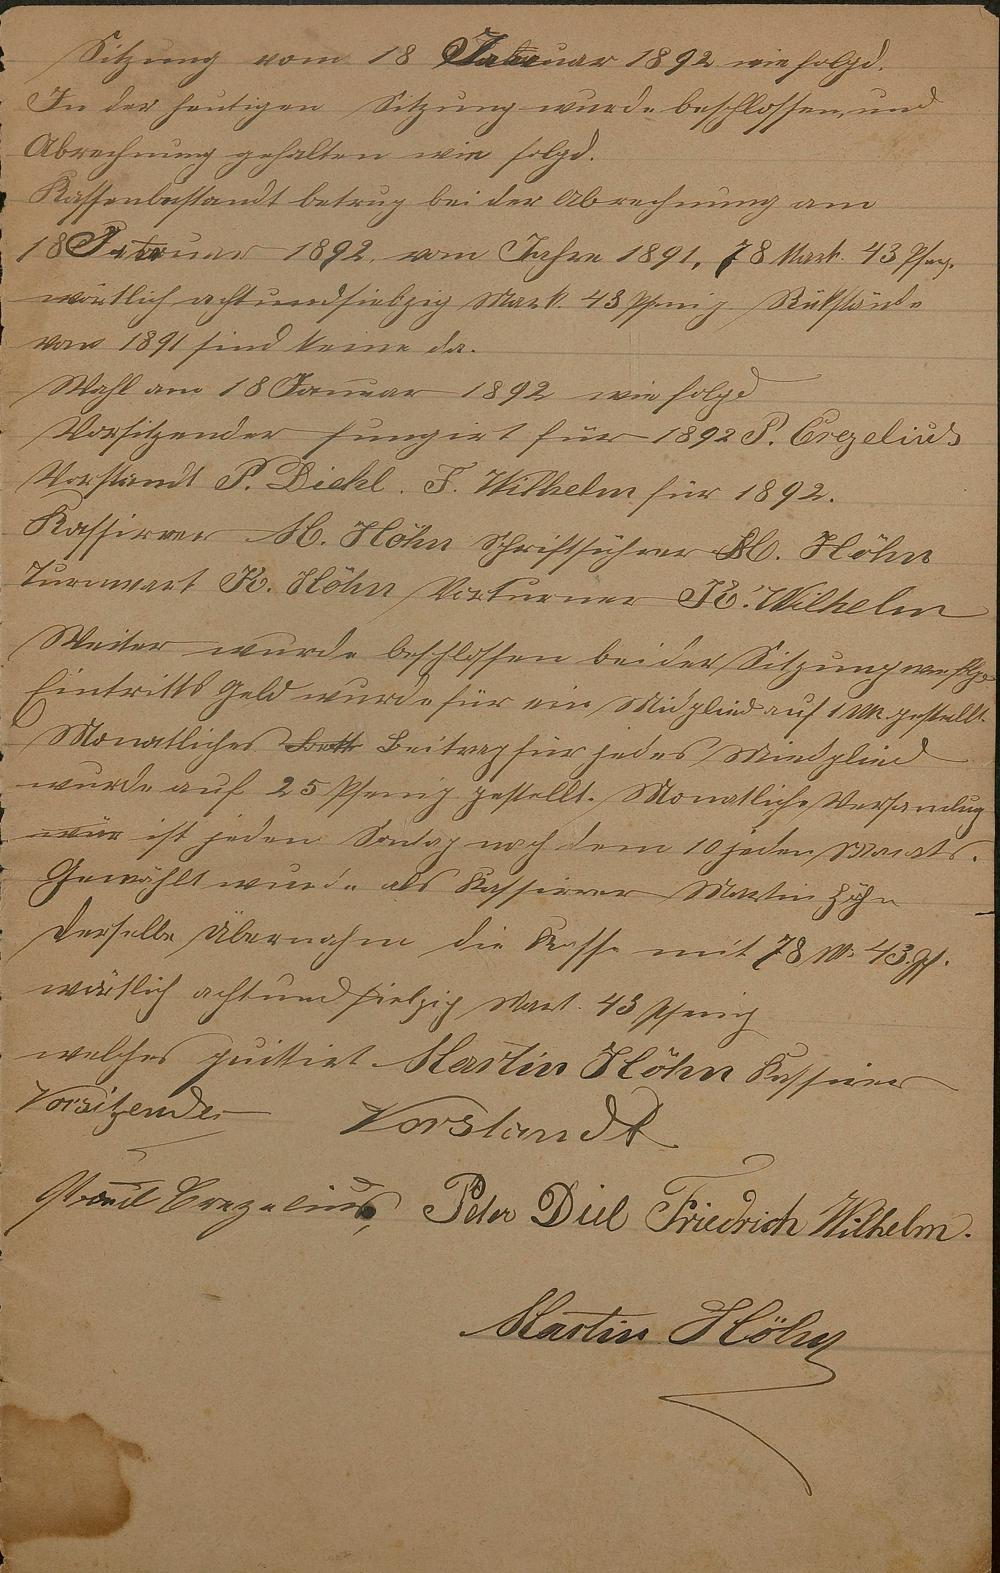 Sitzung vom 18 Januar 1892 wie folgd.
In der heutigen Sitzung wurde beschlossen, und
Abrechnung gehalten wie folgd.
Kassenbestandt betrug bei der Abrechnung am
18 Januar 1892. vom Jahre 1891, 78 Mark. 43 Pfeng.
wörtlich achtundsiebzig Mark. 43 Pfenig. Rükstände
von 1891 sind keine da.
Wahl am 18 Januar 1892 wie folgd
Vorsitzender fungirt für 1892 P. Crezelius
Vorstandt P. Diehl. F. Wilhelm für 1892.
Kassirrer M. Höhn Schriftführer M. Höhn
Turnwart K. Höhn Vorturner K. Wilhelm
Weiter wurde beschlossen bei der Sitzung wie folgd
Eintritts Geld wurde für ein Midglied auf 1 Mk gestellt.
Monatliches Beitrag für jedes Miedglied
wurde auf 25 Pfenig gestellt. Monatliche Versamlug
wär ist jeden Sontag nach dem 10 jeden Monats.
Gewählt wurde als Kassirrer Martin Höhn
derselbe Übernahm die Kasse mit 78 M. 43. Pf.
wörtlich achtund siebzig Mark. 43 Pfenig
welches quittirt Martin Höhn Kassirer
Vorsitzender Vorstandt
Paul Crezelius, Peter Diel Friedrich Wilhelm.
Martin Höhn